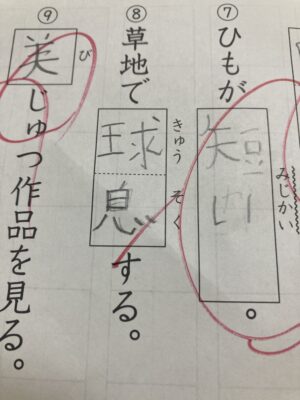 ⑦ひもが短。
みじかい
⑧草地で球息する。
きゅうそく
⑨美じゅつ作品を見る。
び